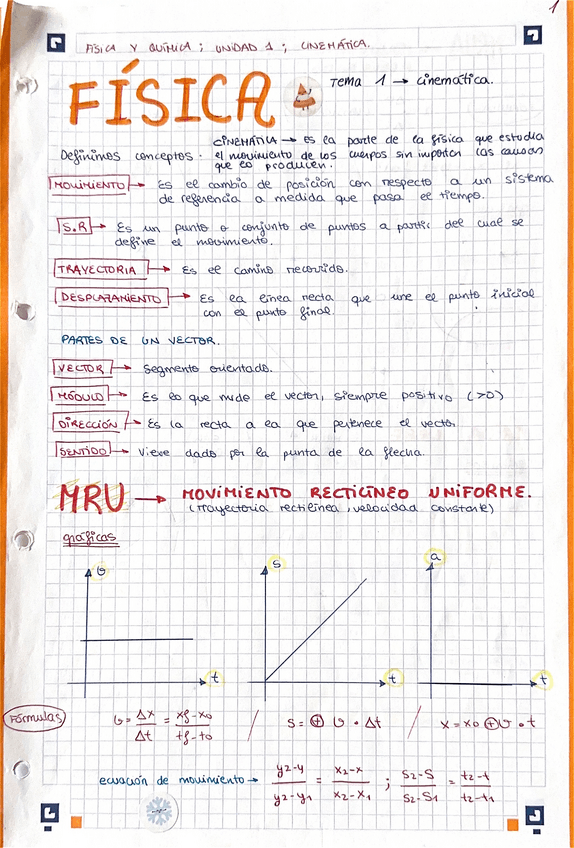 1
FÍSICA Y QUÍMICA ; UNIDAD 1 ; CINEMÁTICA.
FÍSICA
Tema 1 → cinemática.
CINEMÁTICA → Es la parte de la física que estudia
Definimos conceptos. el movimiento de los cuerpos sin importar las causas
que lo producen.
MOVIMIENTO → Es el cambio de posición con respecto a un sistema
de referencia a medida que pasa el tiempo.
S.R → Es un punto o conjunto de puntos a partir del cual se
define el movimiento.
TRAYECTORIA → Es el camino recorrido.
DESPLAZAMIENTO → Es la línea recta que une el punto inicial
con el punto final.
PARTES DE UN VECTOR.
VECTOR → Segmento orientado.
MÓDULO → Es lo que mide el vector, siempre positivo (>0)
DIRECCIÓN → Es la recta a la que pertenece el vector
SENTIDO → Viene dado por la punta de la flecha.
MRU → MOVIMIENTO RECTILÍNEO UNIFORME.
(Trayectoria rectilínea, velocidad constante)
gráficas
v s a
t t t
Fórmulas
v = Δx/Δt = xf-x0/tf-t0 / s = ⊕ v · Δt / x = x0 ⊕ v · t
ecuación de movimiento → y2-y/y2-y1 = x2-x/x2-x1 ; s2-s/s2-s1 = t2-t/t2-t1